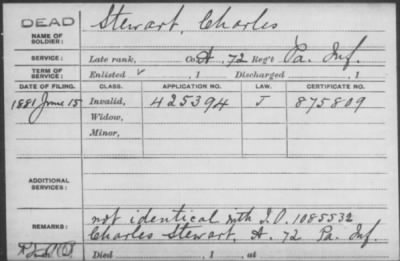 DEAD
NAME OF SOLDIER: Stewart, Charles
SERVICE: Late rank, Co. A. 72 Reg't Pa. Inf.
TERM OF SERVICE: Enlisted , 1 Discharged , 1
DATE OF FILING. CLASS. APPLICATION NO. LAW. CERTIFICATE NO.
1881 June 15 Invalid, 425394 J 875809
Widow,
Minor,
ADDITIONAL SERVICES:
REMARKS: not identical with I.O. 1085532
Charles Stewart, A. 72 Pa. Inf.
Died , 1 , at